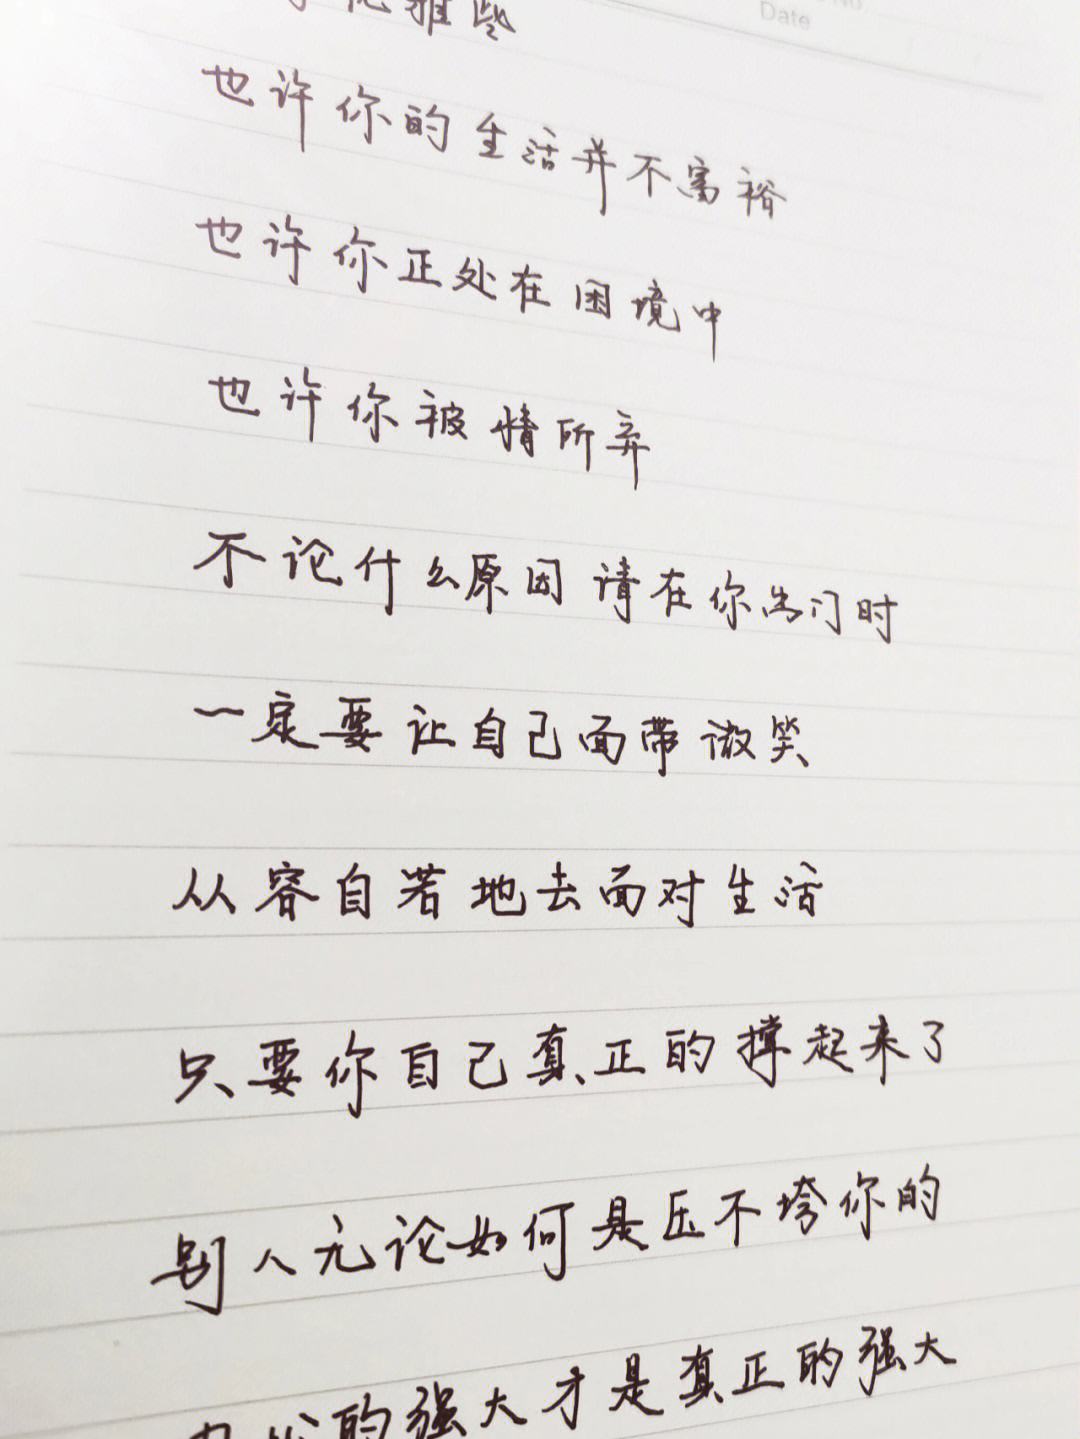 No.
Date
优雅些
也许你的生活并不富裕
也许你正处在困境中
也许你被情所弃
不论什么原因请在你出门时
一定要让自己面带微笑
从容自若地去面对生活
只要你自己真正的撑起来了
别人无论如何是压不垮你的
内心的强大才是真正的强大